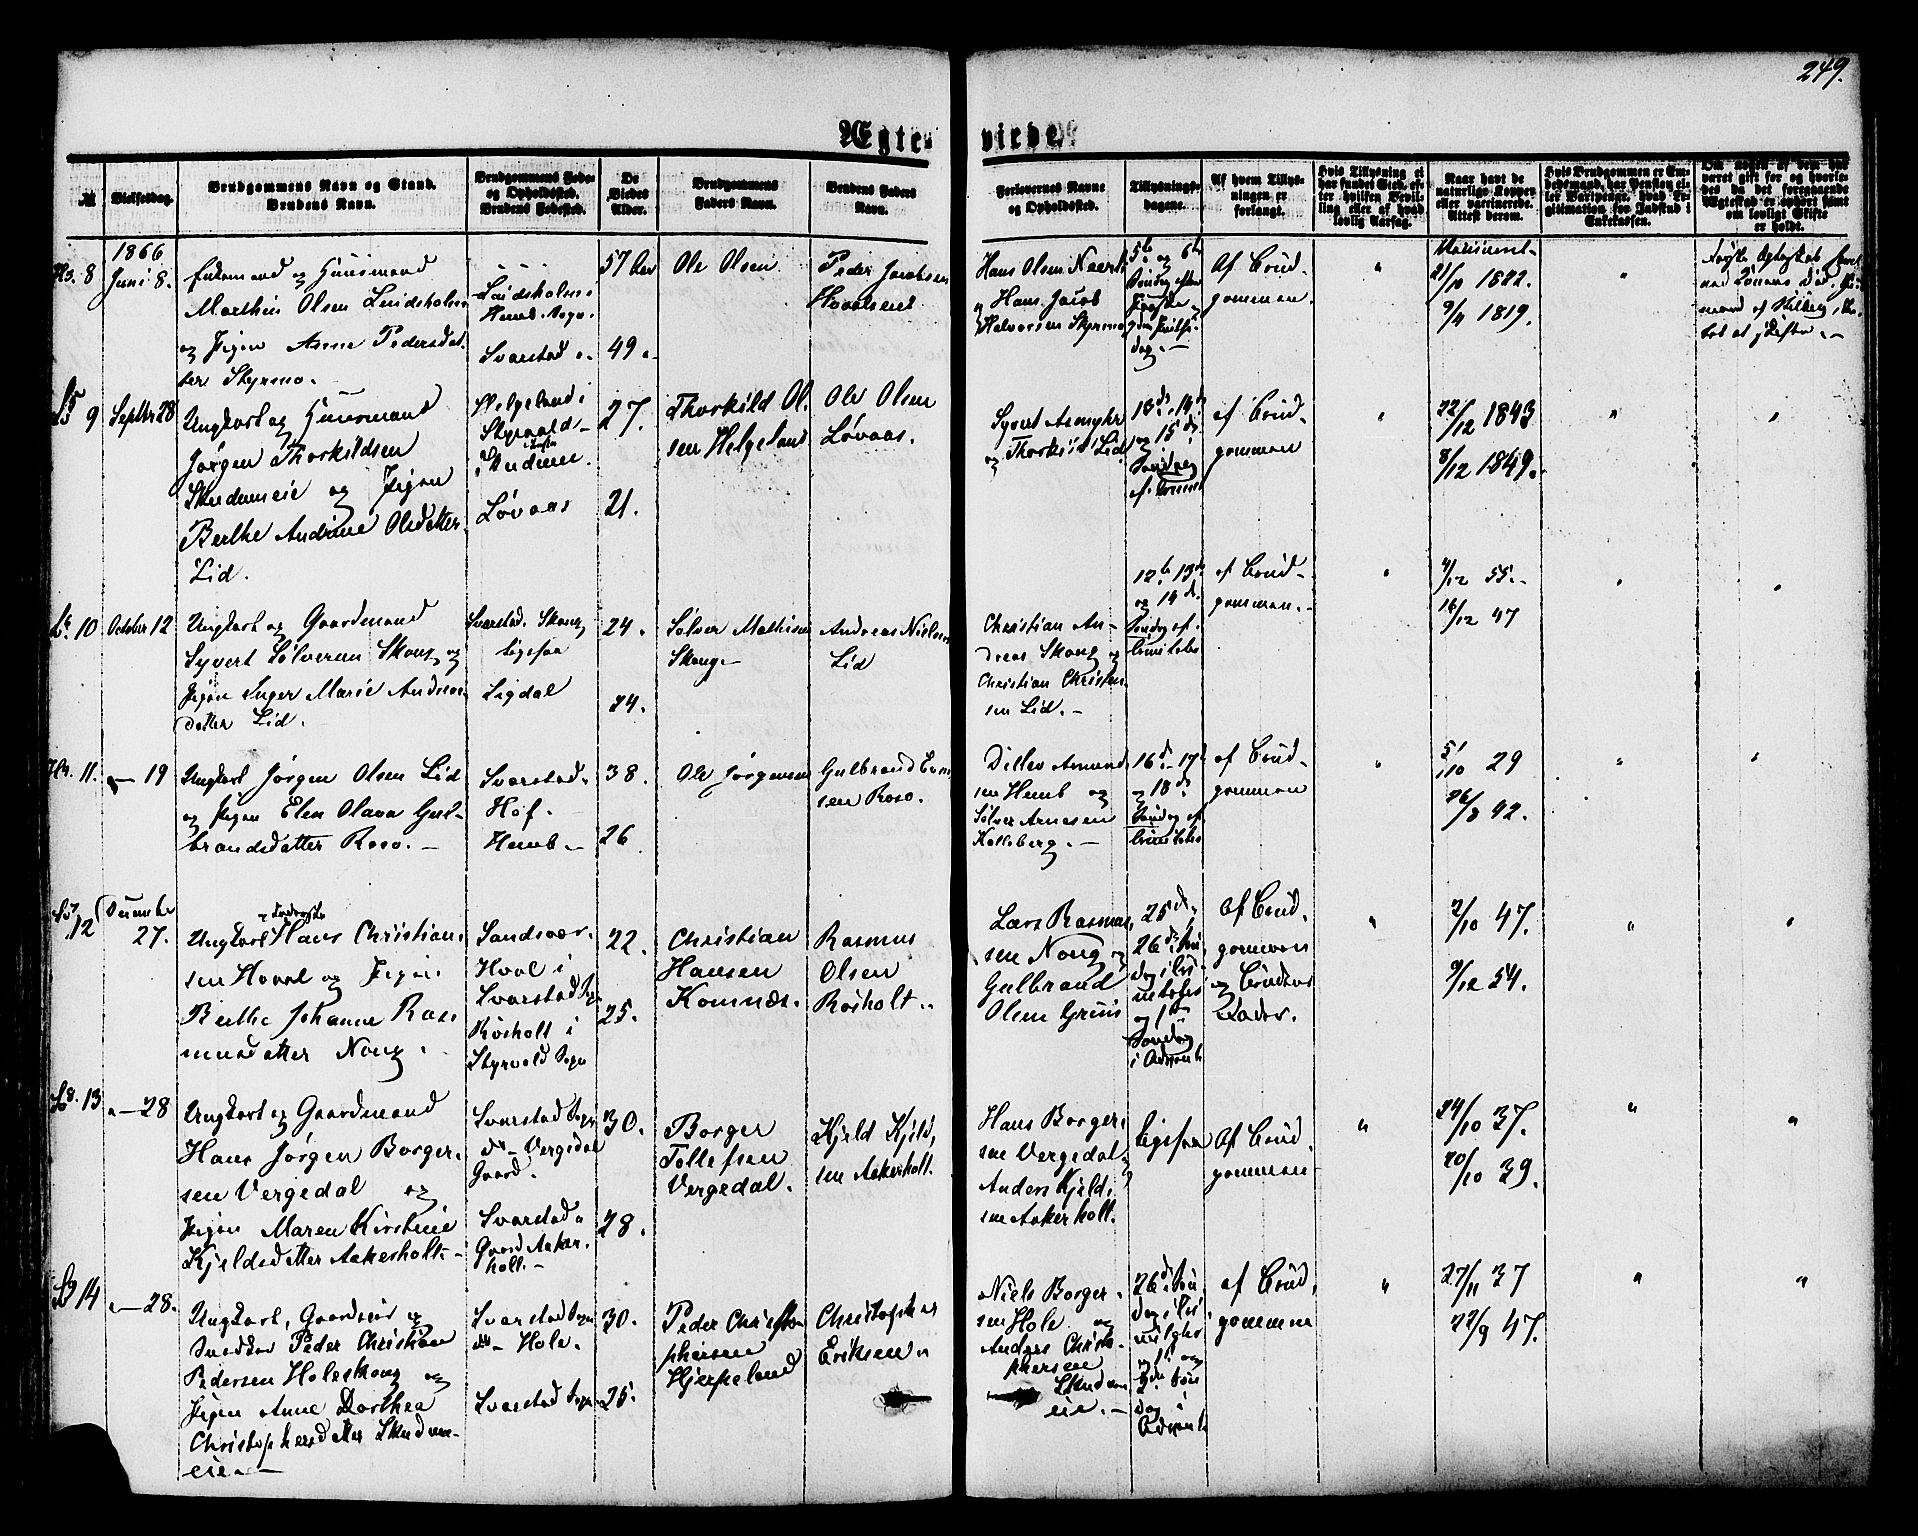 249.
Ægte-
viede.
№
Vielsesdag.
Brudgommens Navn og Stand.
Brudens Navn.
Brudgommens Føde-
og Opholdssted.
Brudens Fødested.
De
Viedes
Alder.
Brudgommens
Faders Navn.
Brudens Faders
Navn.
Forlovernes Navne
og Opholdssted.
Tillysnings-
dagene.
Af hvem Tillys-
ningen er
forlangt.
Hvis Tillysning ei
har fundet Sted, ef-
ter hvilken Bevil-
ling eller af hvad
lovlig Aarsag.
Naar havt de
naturlige Kopper
eller vaccinerede.
Attest derom.
Hvis Brudgommen er Em-
bedsmand, har Pension el-
ler Vartpenge, hvad Le-
gitimation for Indskud i
Enkekassen.
Om nogen af dem har
været gift før og hvorle-
des da det foregaaende
Ægteskab er ophørt samt
om lovligt Skifte
er holdt.
1866
8
Juni 8.
Enkemand og Huusmand
Mathias Olsen Lindsholm
og Pigen Anne Pedersdat-
ter Styrmo.
Lindsholm i
Hemb. Sogn.
Svarstad
57 Aar
49
Ole Olsen
Peder Jacobsen
Hans Olsen
og Hans Jacob
Halvorsen Styrmo
5te og 6te
Søndag efter
Af Brud-
gommen.
21/10 1822.
9/4 1819.
9
Septbr 28
Ungkarl og Huusmand
Jørgen Thorkildsen
Skudumeie og Pigen
Berthe Andrine Olsdatter
Lid.
Helgeland i
Løvaas
27.
21.
Thorkild Ol-
sen Helgeland
Ole Olsen
Løvaas.
Syvert
og Thorkild Lid
13de, 14de
og 15de
Søndag
af Brud-
gommen
22/12 1843
8/12 1849.
10
October 12
Ungkarl og Gaardmand
Syvert Sølversen Skoug og
Pigen Inger Marie Andreas-
datter Lid.
Svarstad. Skoug
ligesaa
Sigdal
24.
24.
Sølver Mathisen
Skoug
Andreas Nielsen
Lid
Christian An-
dreas Skoug og
Christian Christen-
sen Lid.
12te 13de
og 14de
Søndag ef.
Trinitatis
af Brud-
gommen.
4/12 55.
16/12 47
11.
19
Ungkarl Jørgen Olsen Lid
og Pigen Elen Olava Gul-
brandsdatter Roso.
Svarstad
Hof.
Hemb
38.
26
Ole Jørgensen
Gulbrand Even
sen Roso.
Ditlev Amund
sen Hemb og
Sølver Arnesen
Kolsberg.
16de 17de
og 18de
Søndag ef
Trinitatis
af Brud-
gommen
5/10 29
26/8 42.
12
December
27.
Ungkarl Hans Christian-
sen Hoval og Pigen
Berthe Johanne Ras-
musdatter Noug.
Sandsvær.
Hval i
Svarstad Sogn
Røsholt i
Styrvold Sogn
22.
25.
Christian
Hansen
Komnæs.
Rasmus
Olsen
Røsholt
Lars Rasmus-
sen Noug og
Gulbrand
Olsen Gruis
25de,
26de Søn
dag i Tri
nitatis
og 1ste
Søndag
i Advent
Af Brud-
gommen
og Brudens
Fader.
2/10 47.
9/12 54.
13
28
Ungkarl og Gaardmand
Hans Jørgen Borger-
sen Vergedal og
Pigen Maren Kirstine
Kjeldsdatter Aakerholt
Svarstad Sogn
Vergedal
Gaard.
Svarstad
Gaard Aaker-
holt.
30.
28.
Borger
Tollefsen
Vergedal.
Kjeld Kjeld-
sen Aakerholt.
Hans Borger-
sen Vergedal
Anders Kjeld-
sen Aakerholt.
ligesaa
Af Brud-
gommen
24/10 37.
20/10 39.
14
28.
Ungkarl, Gaardeier og
Snedker Peder Christian
Pedersen Holeskoug og
Pigen Anne Dorthea
Christophersdatter Skudum-
eie
Svarstad Sogn
Hole.
Svarstad Sogn
30.
25.
Peder Christo
phersen
Hjerpeland
Christopher
Eriksen
Niels Borger-
sen Hole og
Anders Christo-
phersen
Skudum
eie.
26de Søn
dag i Tri
og 1ste og
2den Søn
dag i
Advent
af Brud-
gommen
27/11 37
22/9 47.